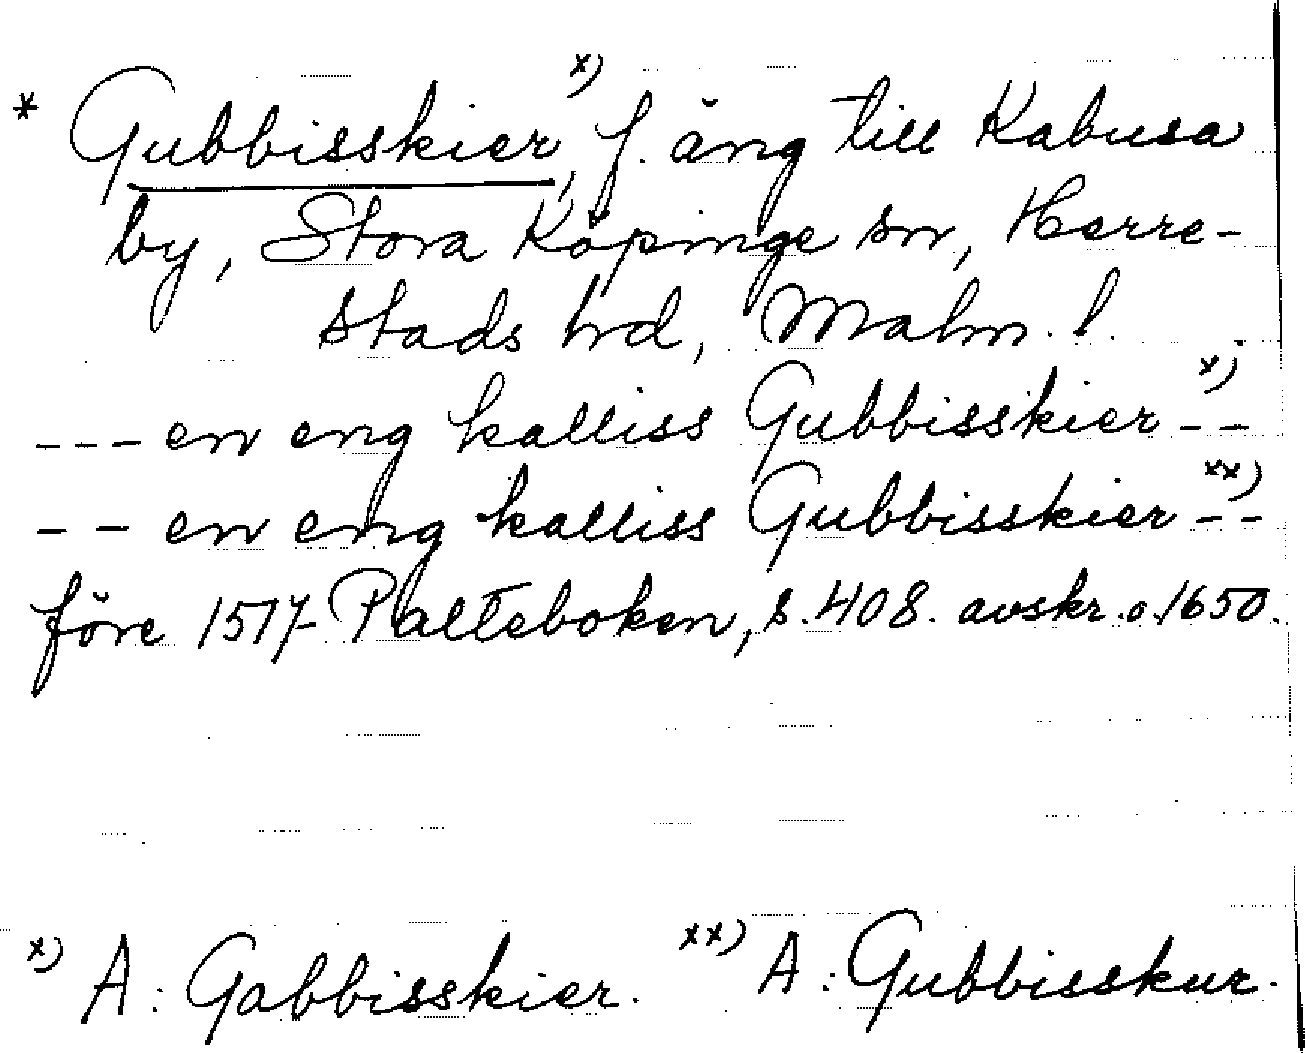 * Gubbisskier,ˣ⁾ f. äng till Kabusa
by, Stora Köpinge sn, Herre-
stads hd, Malm. l.
--- en eng kalliss Gubbisskierˣ⁾ --
-- en eng kalliss Gubbisskierˣˣ⁾ --
före 1517 Palteboken, s. 408. avskr. o. 1650.
ˣ⁾ A: Gabbisskier. ˣˣ⁾ A: Gubbisskur.